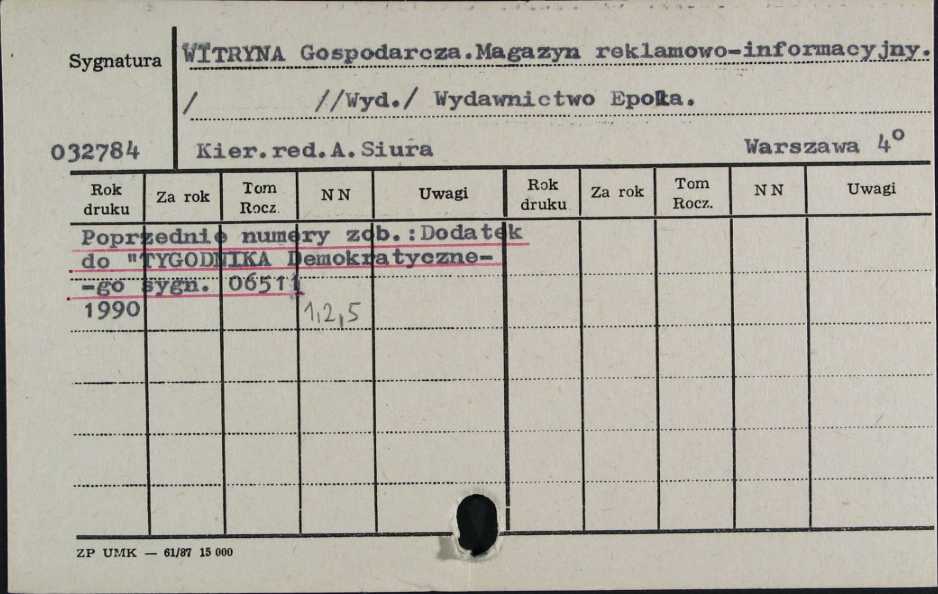 Sygnatura
WITRYNA Gospodarcza.Magazyn reklamowo-informacyjny.
/ //Wyd./ Wydawnictwo Epoka.
032784 Kier.red.A.Siura Warszawa 4o
Rok druku Za rok Tom Rocz. NN Uwagi Rok druku Za rok Tom Rocz. NN Uwagi
Poprzednie numery zob.:Dodatek
do "TYGODNIKA Demokratyczne-
-go sygn. 06511
1990 1,2,5
ZP UMK — 61/87 15 000